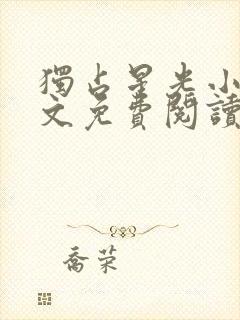 獨占星光小
文免費閱讀
喬荣